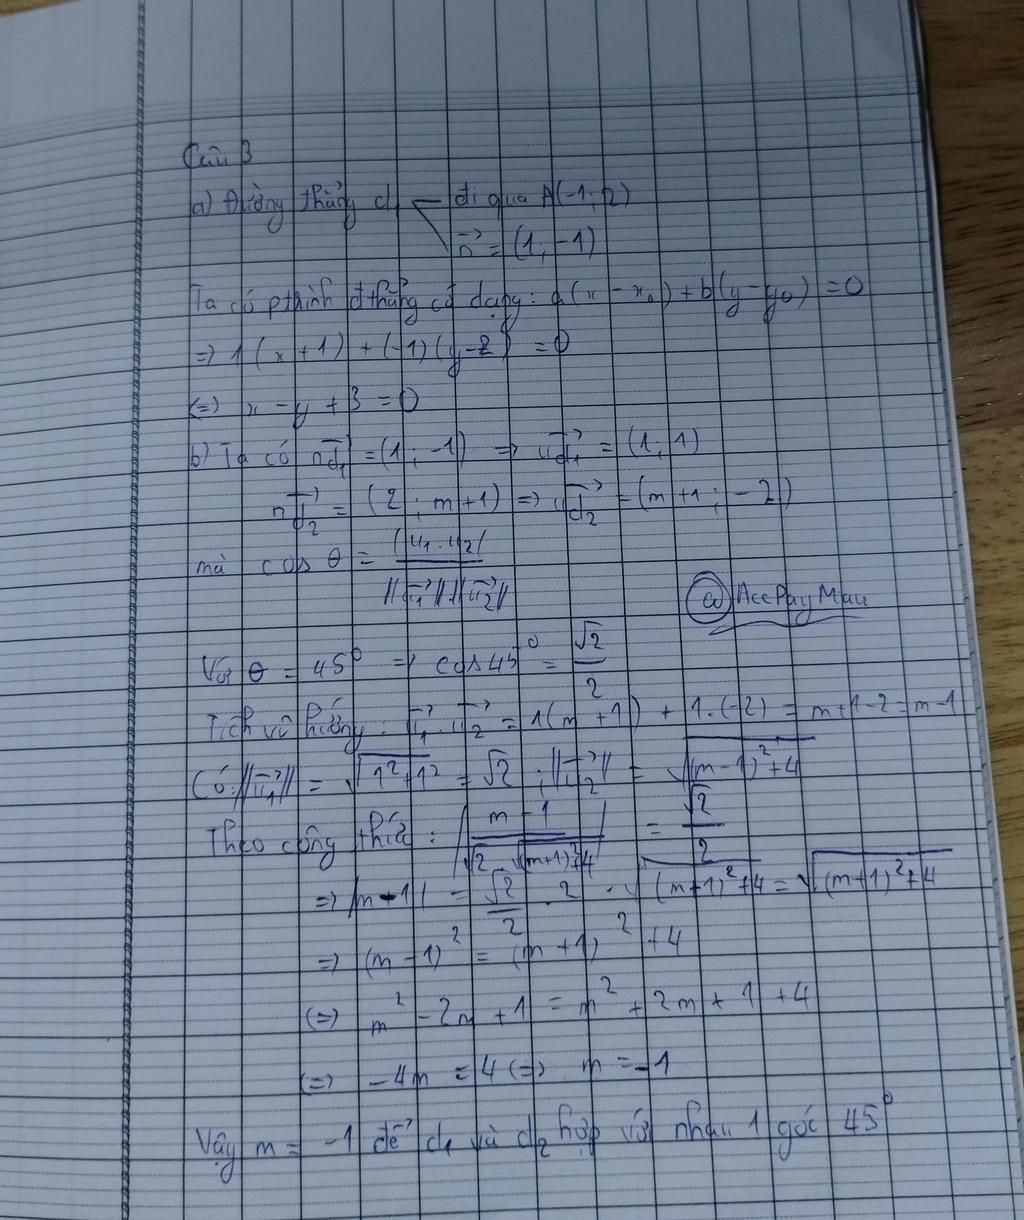 Câu 3
a) Đường thẳng d₁ đi qua A(-1; 2)
n⃗ = (1; -1)
Ta có pt hình đ thẳng có dạng: a(x - x₀) + b(y - y₀) = 0
=> 1(x + 1) + (-1)(y - 2) = 0
(=) x - y + 3 = 0
b) Ta có n⃗d₁ = (1; -1) => u⃗d₁ = (1; 1)
n⃗d₂ = (2; m+1) => u⃗d₂ = (m+1; -2)
mà cos θ = |u₁.u₂| / ||u⃗₁||.||u⃗₂||
@AccPayMau
Với θ = 45° => cos 45° = √2/2
Tích vô hướng: u⃗₁.u⃗₂ = 1(m+1) + 1.(-2) = m+1-2 = m-1
Có: ||u⃗₁|| = √(1²+1²) = √2 ; ||u⃗₂|| = √((m-1)²+4)
Theo công thức: |(m-1) / (√2.√((m+1)²+4))| = √2/2
=> |m-1| = √2/2 . 2 . √((m+1)²+4) = √((m+1)²+4)
=> (m-1)² = (m+1)² + 4
(=) m² - 2m + 1 = m² + 2m + 1 + 4
(=) -4m = 4 (=) m = -1
Vậy m = -1 để d₁ và d₂ hợp với nhau 1 góc 45°